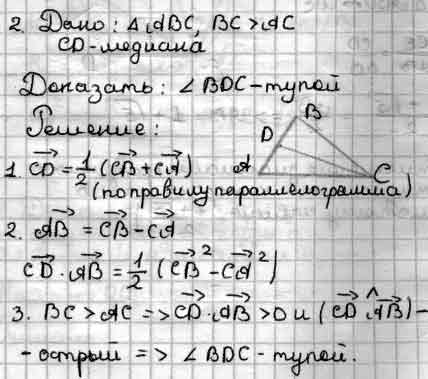 2. Дано: △ABC, BC > AC
CD-медиана
Доказать: ∠BDC-тупой
Решение:
B
D
A
C
1. →CD = 1/2 (→CB + →CA)
(по правилу параллелограмма)
2. →AB = →CB - →CA
→CD · →AB = 1/2 (→CB² - →CA²)
3. BC > AC => →CD · →AB > 0 и (→CD ^ →AB) -
- острый => ∠BDC - тупой.